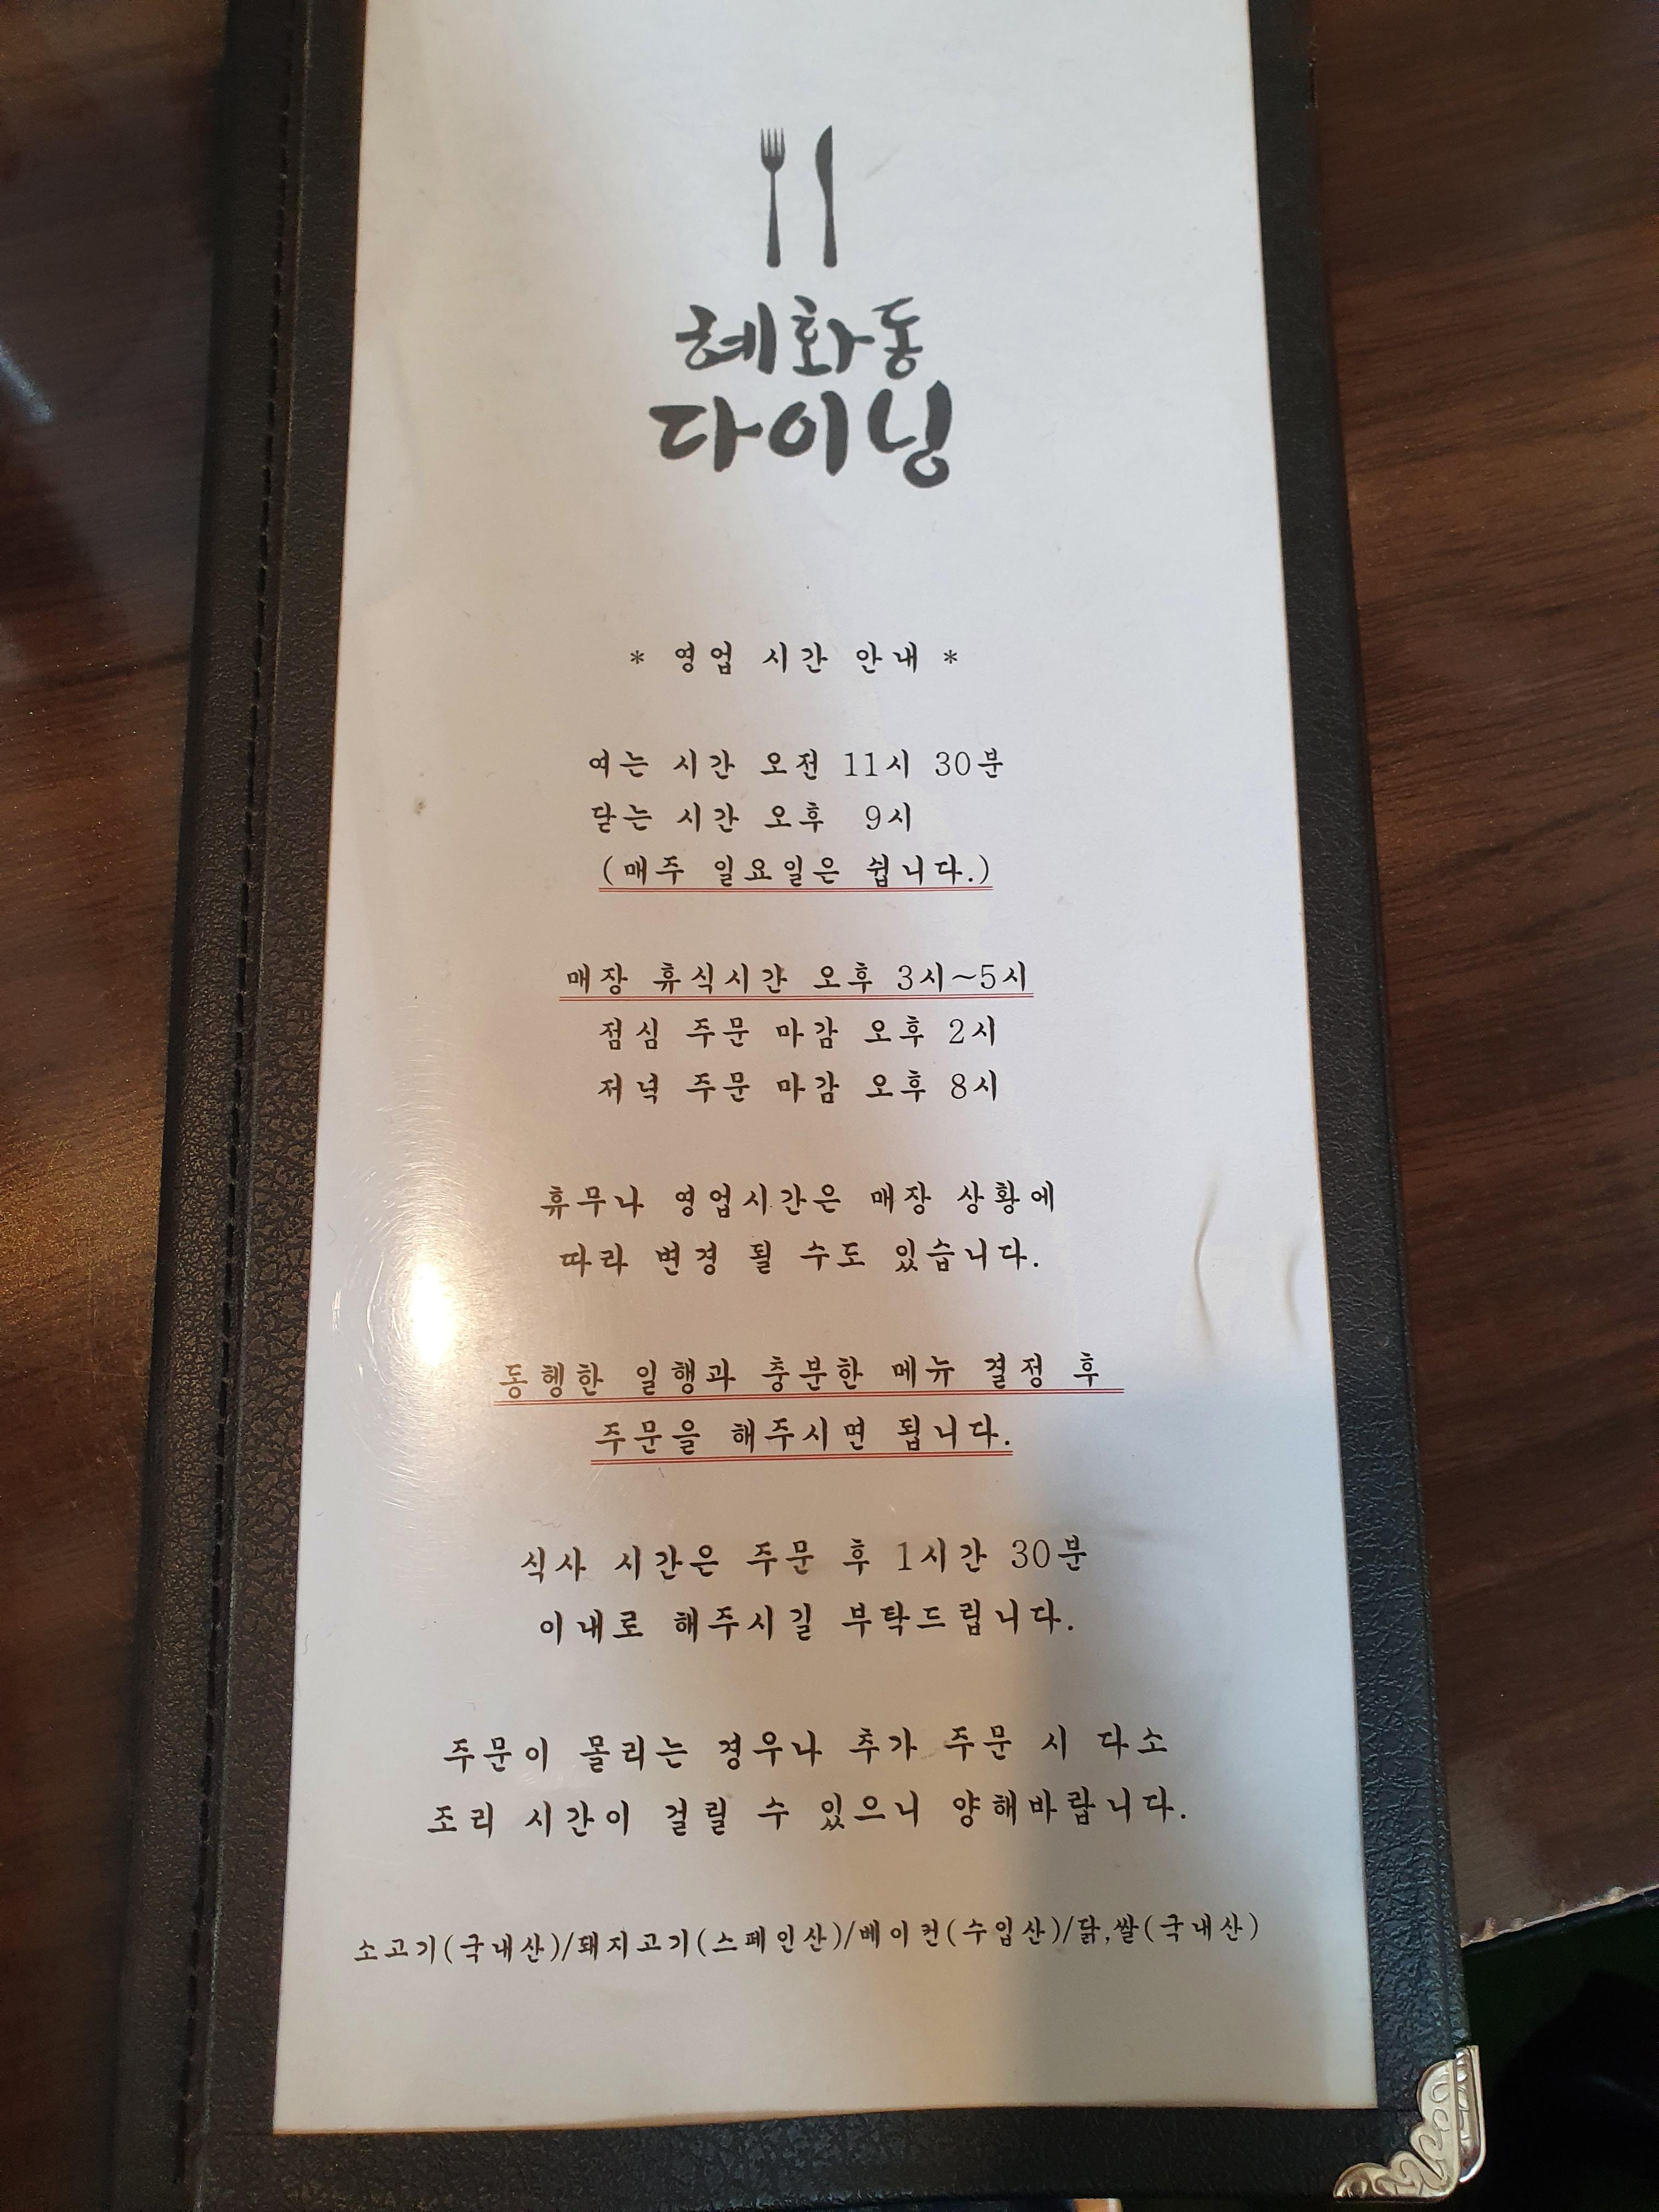 혜화동
다이닝
* 영업 시간 안내 *
여는 시간 오전 11시 30분
닫는 시간 오후 9시
(매주 일요일은 쉽니다.)
매장 휴식시간 오후 3시~5시
점심 주문 마감 오후 2시
저녁 주문 마감 오후 8시
휴무나 영업시간은 매장 상황에
따라 변경 될 수도 있습니다.
동행한 일행과 충분한 메뉴 결정 후
주문을 해주시면 됩니다.
식사 시간은 주문 후 1시간 30분
이내로 해주시길 부탁드립니다.
주문이 몰리는 경우나 추가 주문 시 다소
조리 시간이 걸릴 수 있으니 양해바랍니다.
소고기(국내산)/돼지고기(스페인산)/베이컨(수입산)/닭,쌀(국내산)